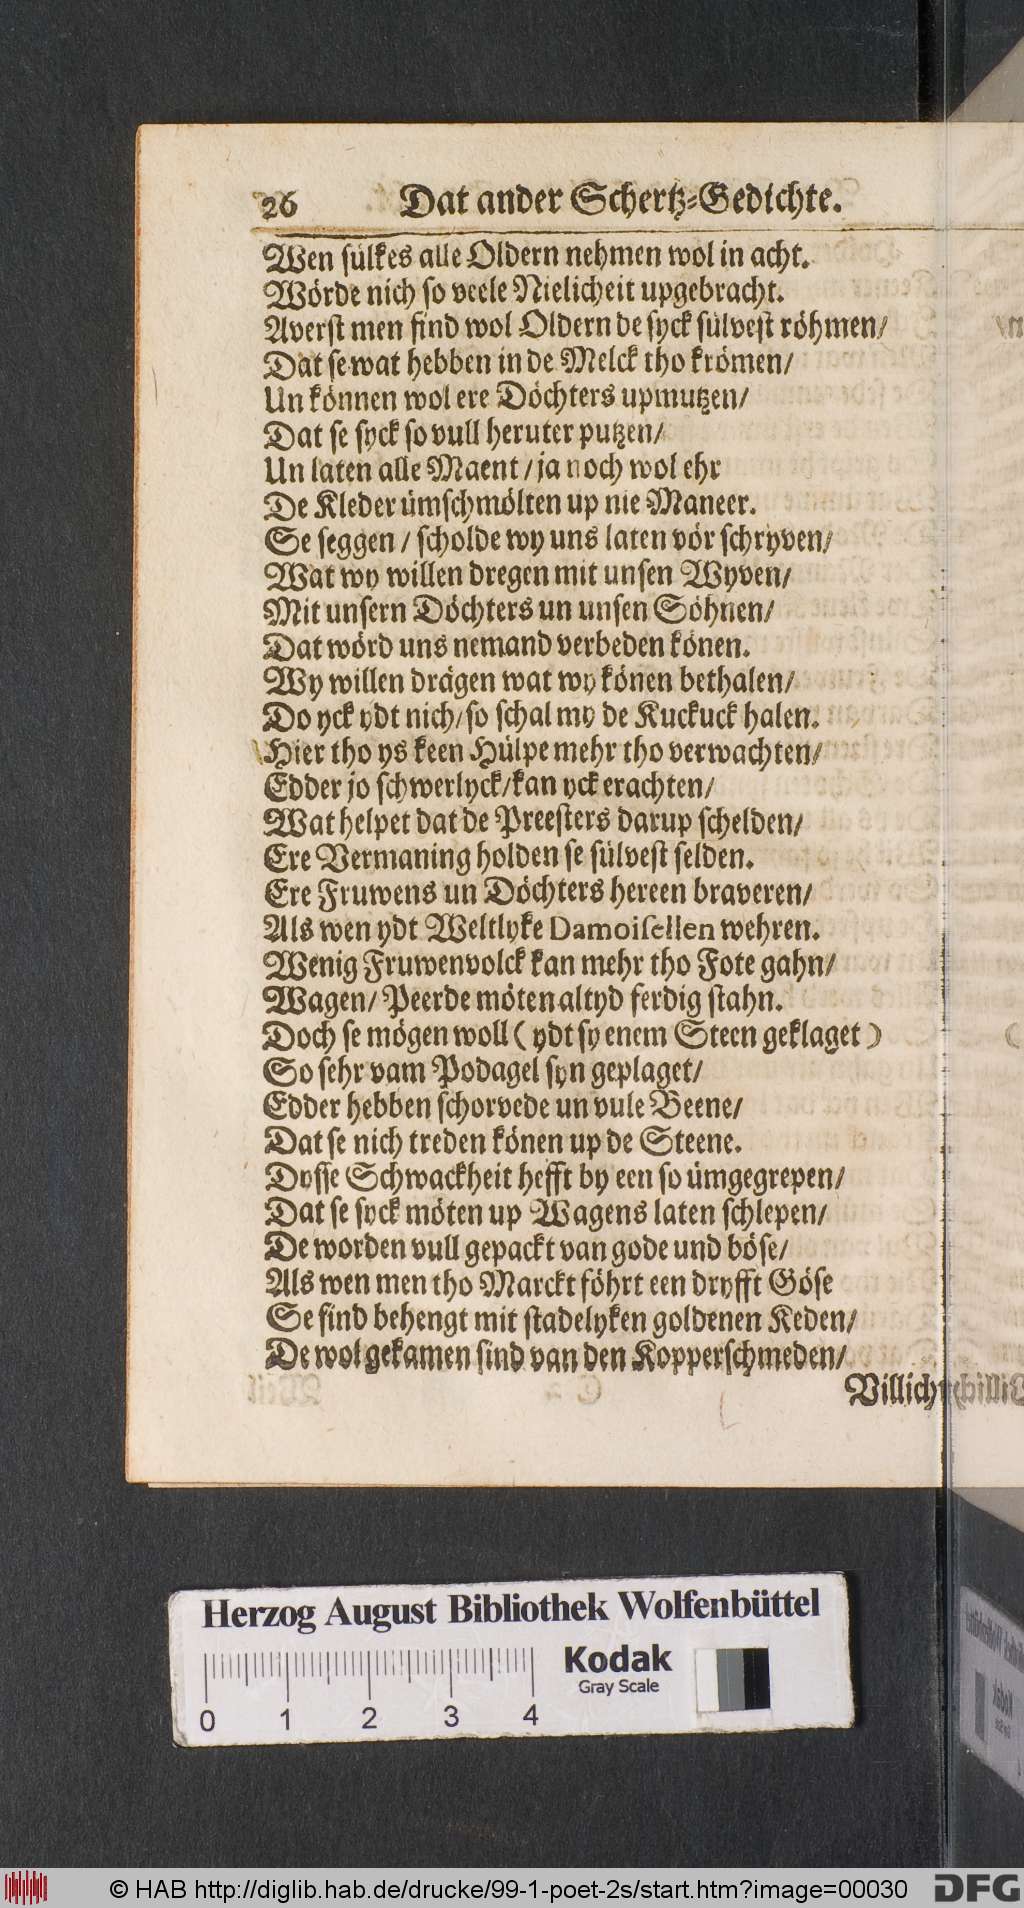 26 Dat ander Schertz-Gedichte.
Wen sülkes alle Oldern nehmen wol in acht.
Wörde nich so veele Nielicheit upgebracht.
Averst men find wol Oldern de syck sülvest röhmen/
Dat se wat hebben in de Melck tho krömen/
Un können wol ere Döchters upmutzen/
Dat se syck so vull heruter putzen/
Un laten alle Maent / ja noch wol ehr
De Kleder ümschmölten up nie Maneer.
Se seggen / scholde wy uns laten vör schryven/
Wat wy willen dregen mit unsen Wyven/
Mit unsern Döchters un unsen Söhnen/
Dat wörd uns nemand verbeden könen.
Wy willen drägen wat wy könen bethalen/
Do yck ydt nich/ so schal my de Kuckuck halen.
Hier tho ys keen Hülpe mehr tho verwachten/
Edder jo schwerlyck/ kan yck erachten/
Wat helpet dat de Preesters darup schelden/
Ere Vermaning holden se sülvest selden.
Ere Fruwens un Döchters hereen braveren/
Als wen ydt Weltlyke Damoisellen wehren.
Wenig Fruwenvolck kan mehr tho Fote gahn/
Wagen/ Peerde möten altyd ferdig stahn.
Doch se mögen woll ( ydt sy enem Steen geklaget )
So sehr vam Podagel syn geplaget/
Edder hebben schorvede un vule Beene/
Dat se nich treden könen up de Steene.
Dysse Schwackheit hefft by een so ümgegrepen/
Dat se syck möten up Wagens laten schlepen/
De worden vull gepackt van gode und böse/
Als wen men tho Marckt föhrt een dryfft Göse
Se sind behengt mit stadelyken goldenen Keden/
De wol gekamen sind van den Kopperschmeden/
Villich
Herzog August Bibliothek Wolfenbüttel
Kodak
Gray Scale
0 1 2 3 4
© HAB http://diglib.hab.de/drucke/99-1-poet-2s/start.htm?image=00030
DFG